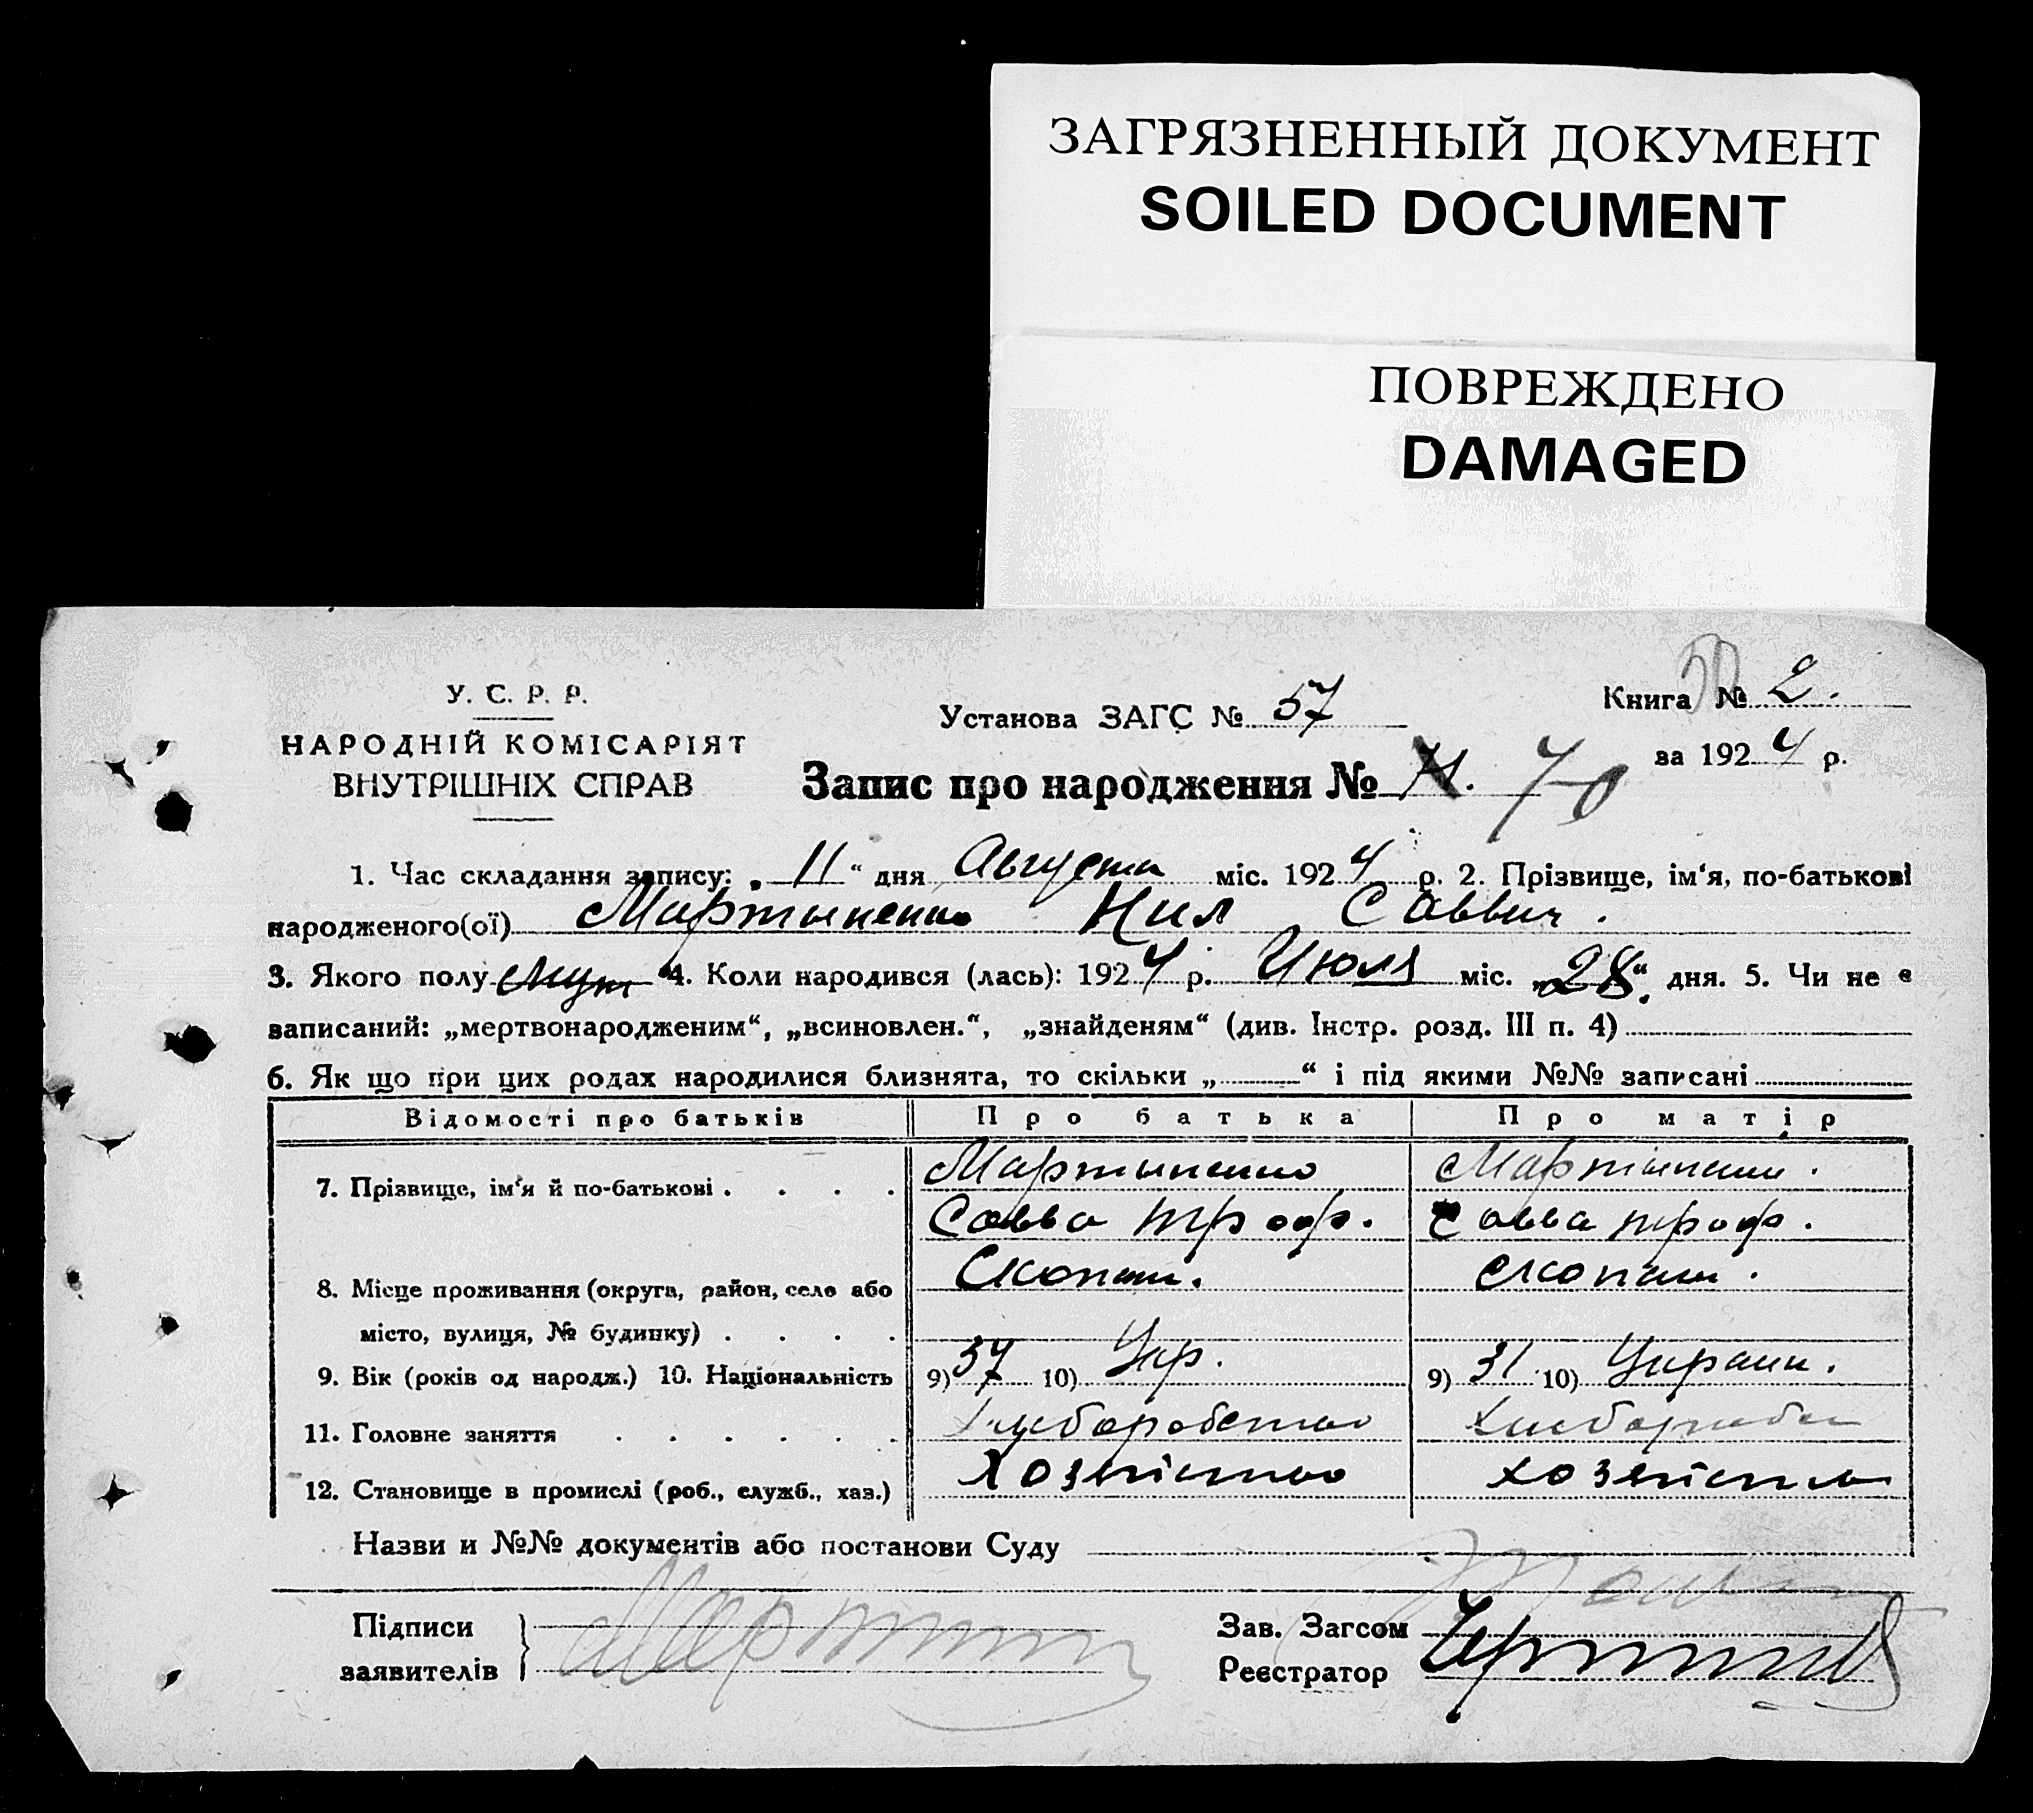 ЗАГРЯЗНЕННЫЙ ДОКУМЕНТ
SOILED DOCUMENT
ПОВРЕЖДЕНО
DAMAGED
У. С. Р. Р.
НАРОДНІЙ КОМІСАРІЯТ
ВНУТРІШНІХ СПРАВ
Установа ЗАГС № 57
Книга № 2.
за 1924 р.
Запис про народження № 70
1. Час складання запису: „11“ дня Августа міс. 1924 р. 2. Прізвище, ім‘я, по-батькові
народженого(ої) Мартыненко Нил Саввич.
3. Якого полу муж 4. Коли народився (лась): 1924 р. Июля міс. „28“ дня. 5. Чи не є
записаний: „мертвонародженим“, „всиновлен.“, „знайденям“ (див. Інстр. розд. III п. 4)
6. Як що при цих родах народилися близнята, то скільки „ “ і під якими №№ записані
Відомості про батьків Про батька Про матір
7. Прізвище, ім‘я й по-батькові Мартыненко Мартыненко.
Савва Троф. Савва троф.
8. Місце проживання (округа, район, село або
місто, вулиця, № будинку)
9. Вік (років од народж.) 10. Національність 9) 37 10) Укр. 9) 31 10) Украин.
11. Головне заняття
12. Становище в промислі (роб., служб., хаз.) Хозяйство хозяйство
Назви и №№ документів або постанови Суду
Підписи
заявителів
Зав. Загсом
Реєстратор